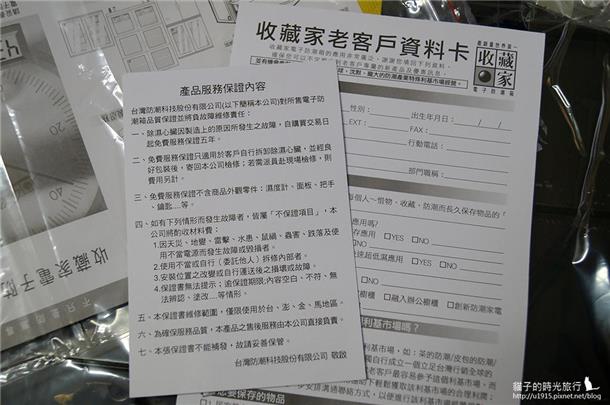 產品服務保證內容
台灣防潮科技股份有限公司(以下簡稱本公司)對所售電子防
潮箱品質保證並將負故障維修責任：
一、除濕心臟因製造上的原因所發生之故障，自購買交易日
起免費服務保證五年。
二、免費服務保證只適用於客戶自行拆卸除濕心臟，並經良
好包裝後，寄回本公司檢修；若需派員赴現場檢修，則
費用另計。
三、免費服務保證不含商品外觀零件：濕度計、面板、把手
、鑰匙....等。
四、如有下列情形而發生故障者，皆屬「不保證項目」，本
公司將酌收材料費：
1.因天災、地變、雷擊、水患、鼠禍、蟲害、跌落及使
用不當電源而發生故障或毀損者。
2.使用不當或自行（委託他人）拆修內部者。
3.安裝位置之改變或自行運送後之損壞或故障。
4.保證書無法提示；逾保證期限;內容空白、不符、無
法辨認、塗改...等情形。
五、本保證書維修範圍，僅限使用於台、澎、金、馬地區
六、為確保服務品質，本產品之售後服務由本公司直接負責。
七、本張保證書不能補發，故請妥善保管。
台灣防潮科技股份有限公司 敬啟
收藏家老客戶資料卡
收藏家
電子防潮箱
性別：
出生年月日： / /
EXT：
FAX：
行動電話：
部門職稱：
應用嗎?
□YES □NO
□YES □NO
□NO
櫥櫃 □融入辦公櫥櫃 □創新防潮家電
利基市場嗎?
收藏家電子防
貓子的時光旅行
http://u1915.pixnet.net/blog